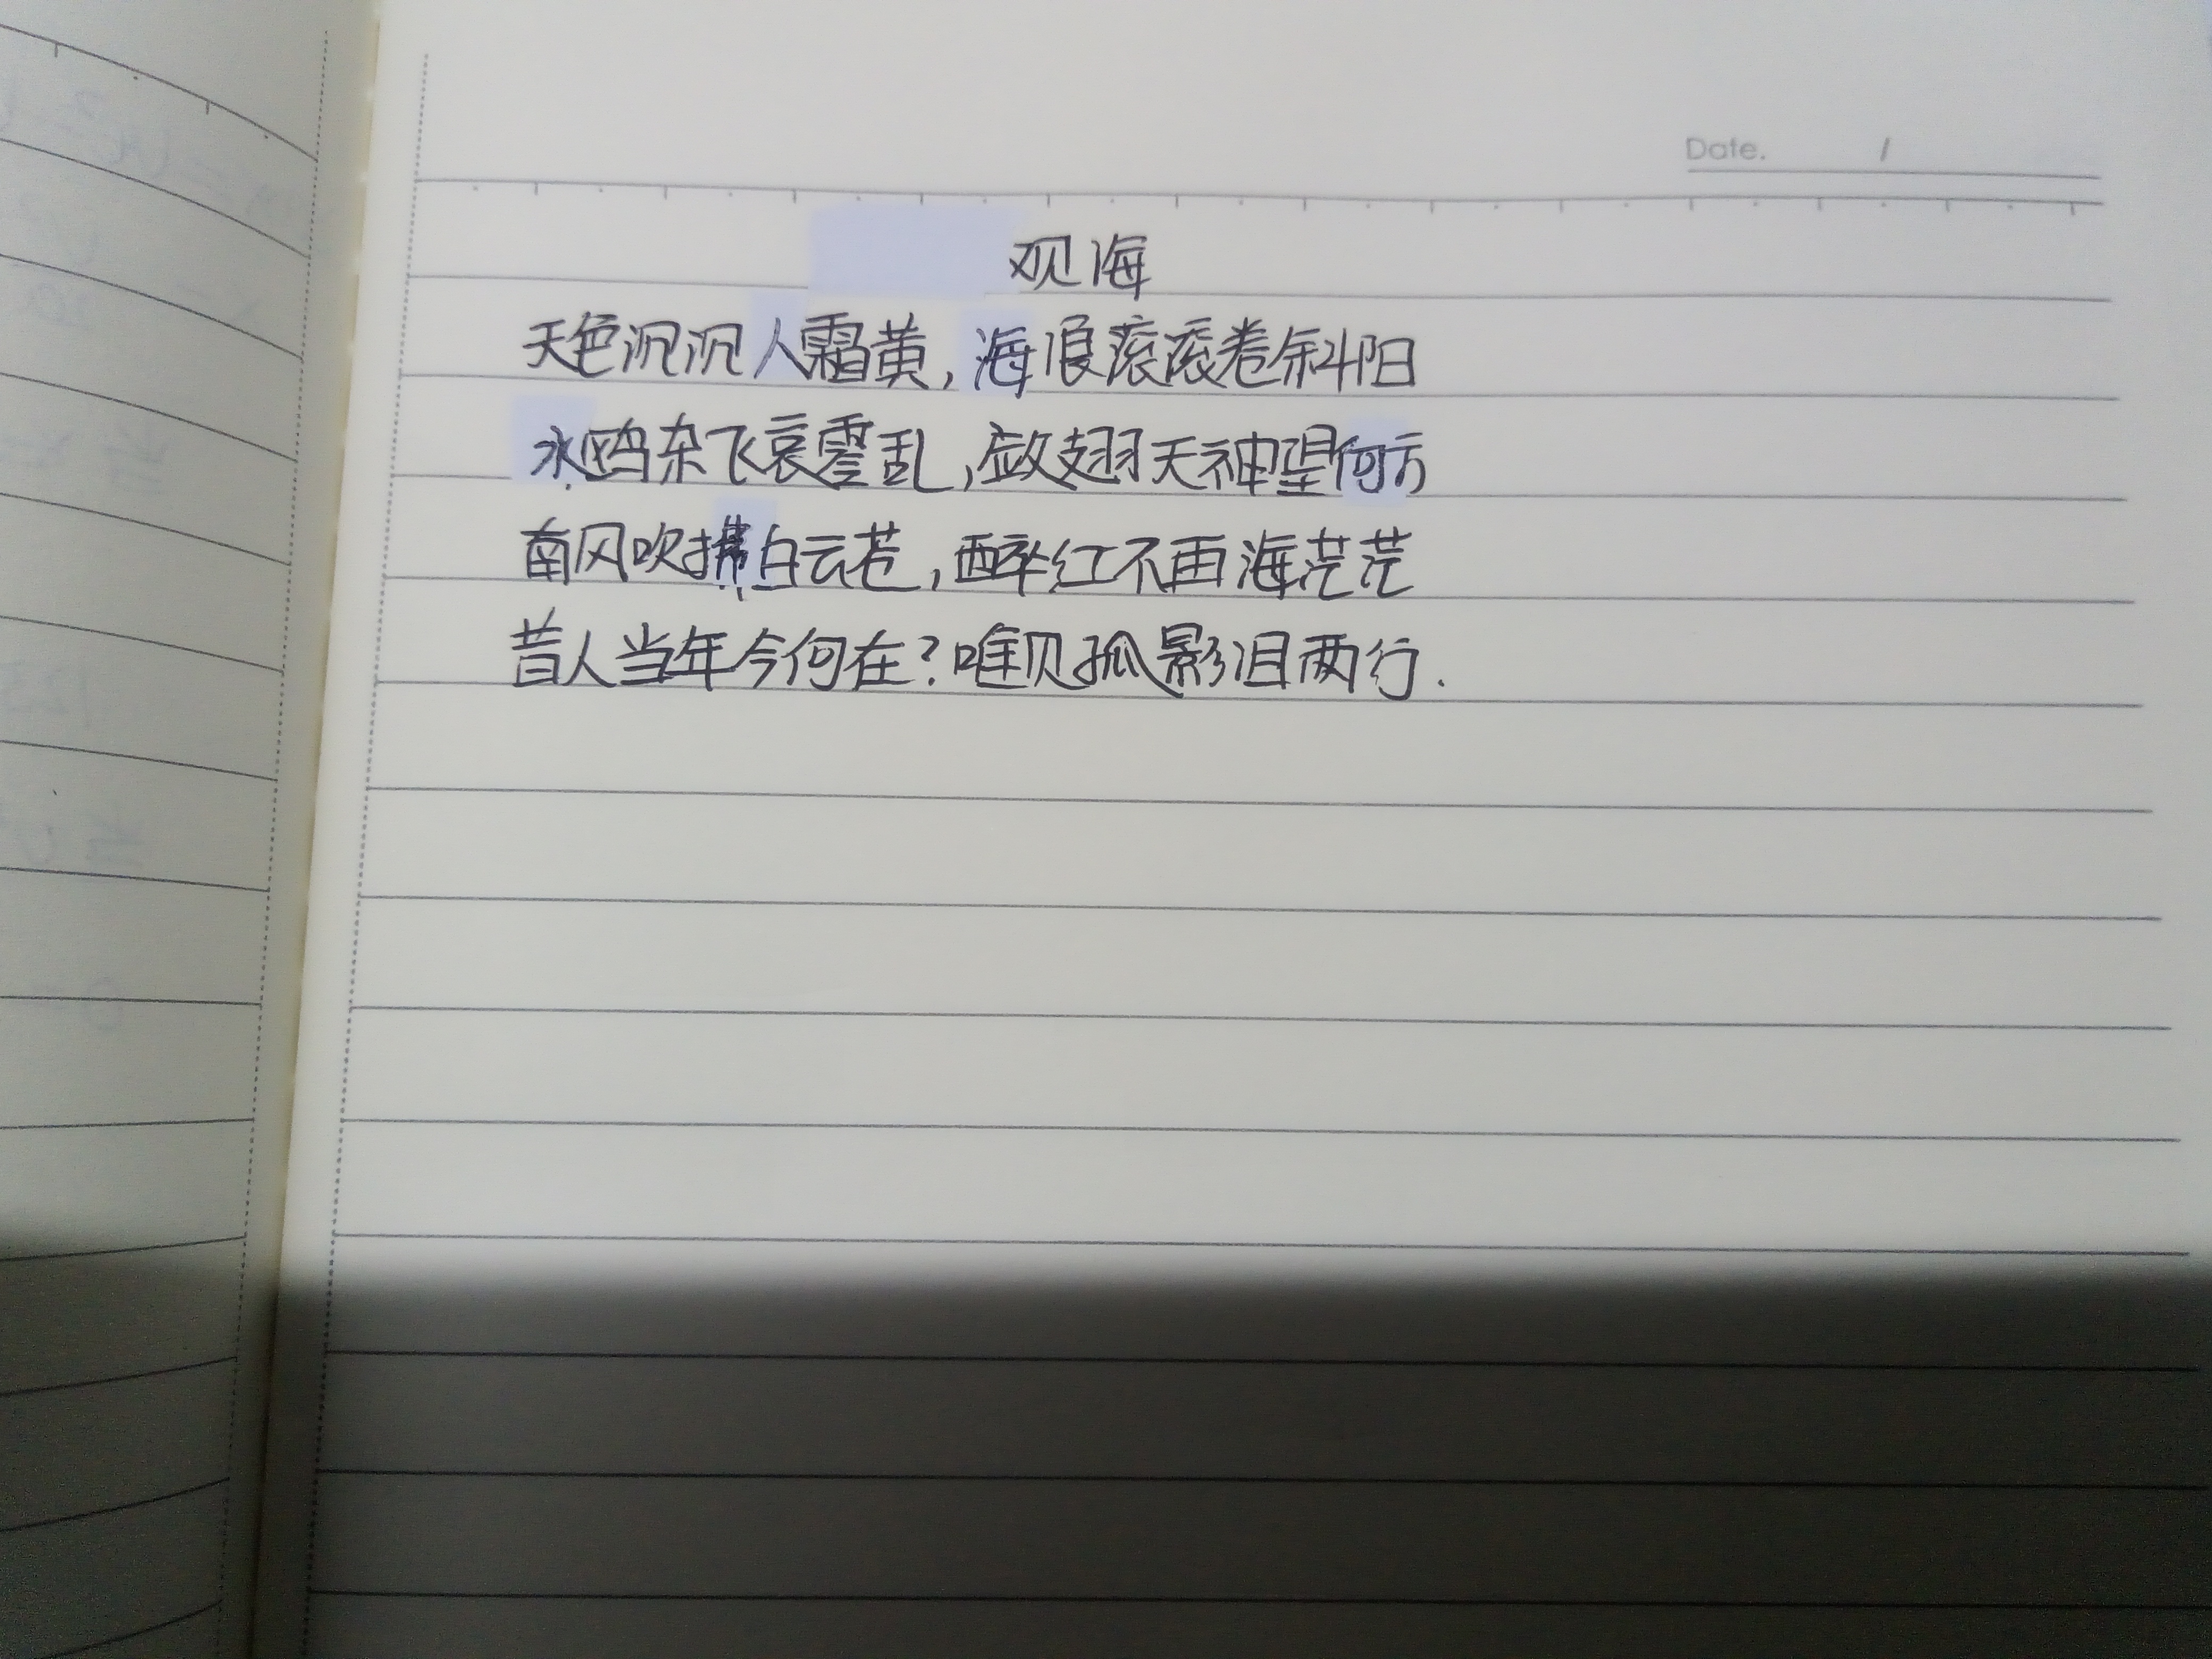 Date. /
观海
天色沉沉人霜黄,海浪滚滚卷斜阳
水鸥杂飞哀零乱,敛翅天神望何方
南风吹拂白云苍,醉红不再海茫茫
昔人当年今何在?唯见孤影泪两行.